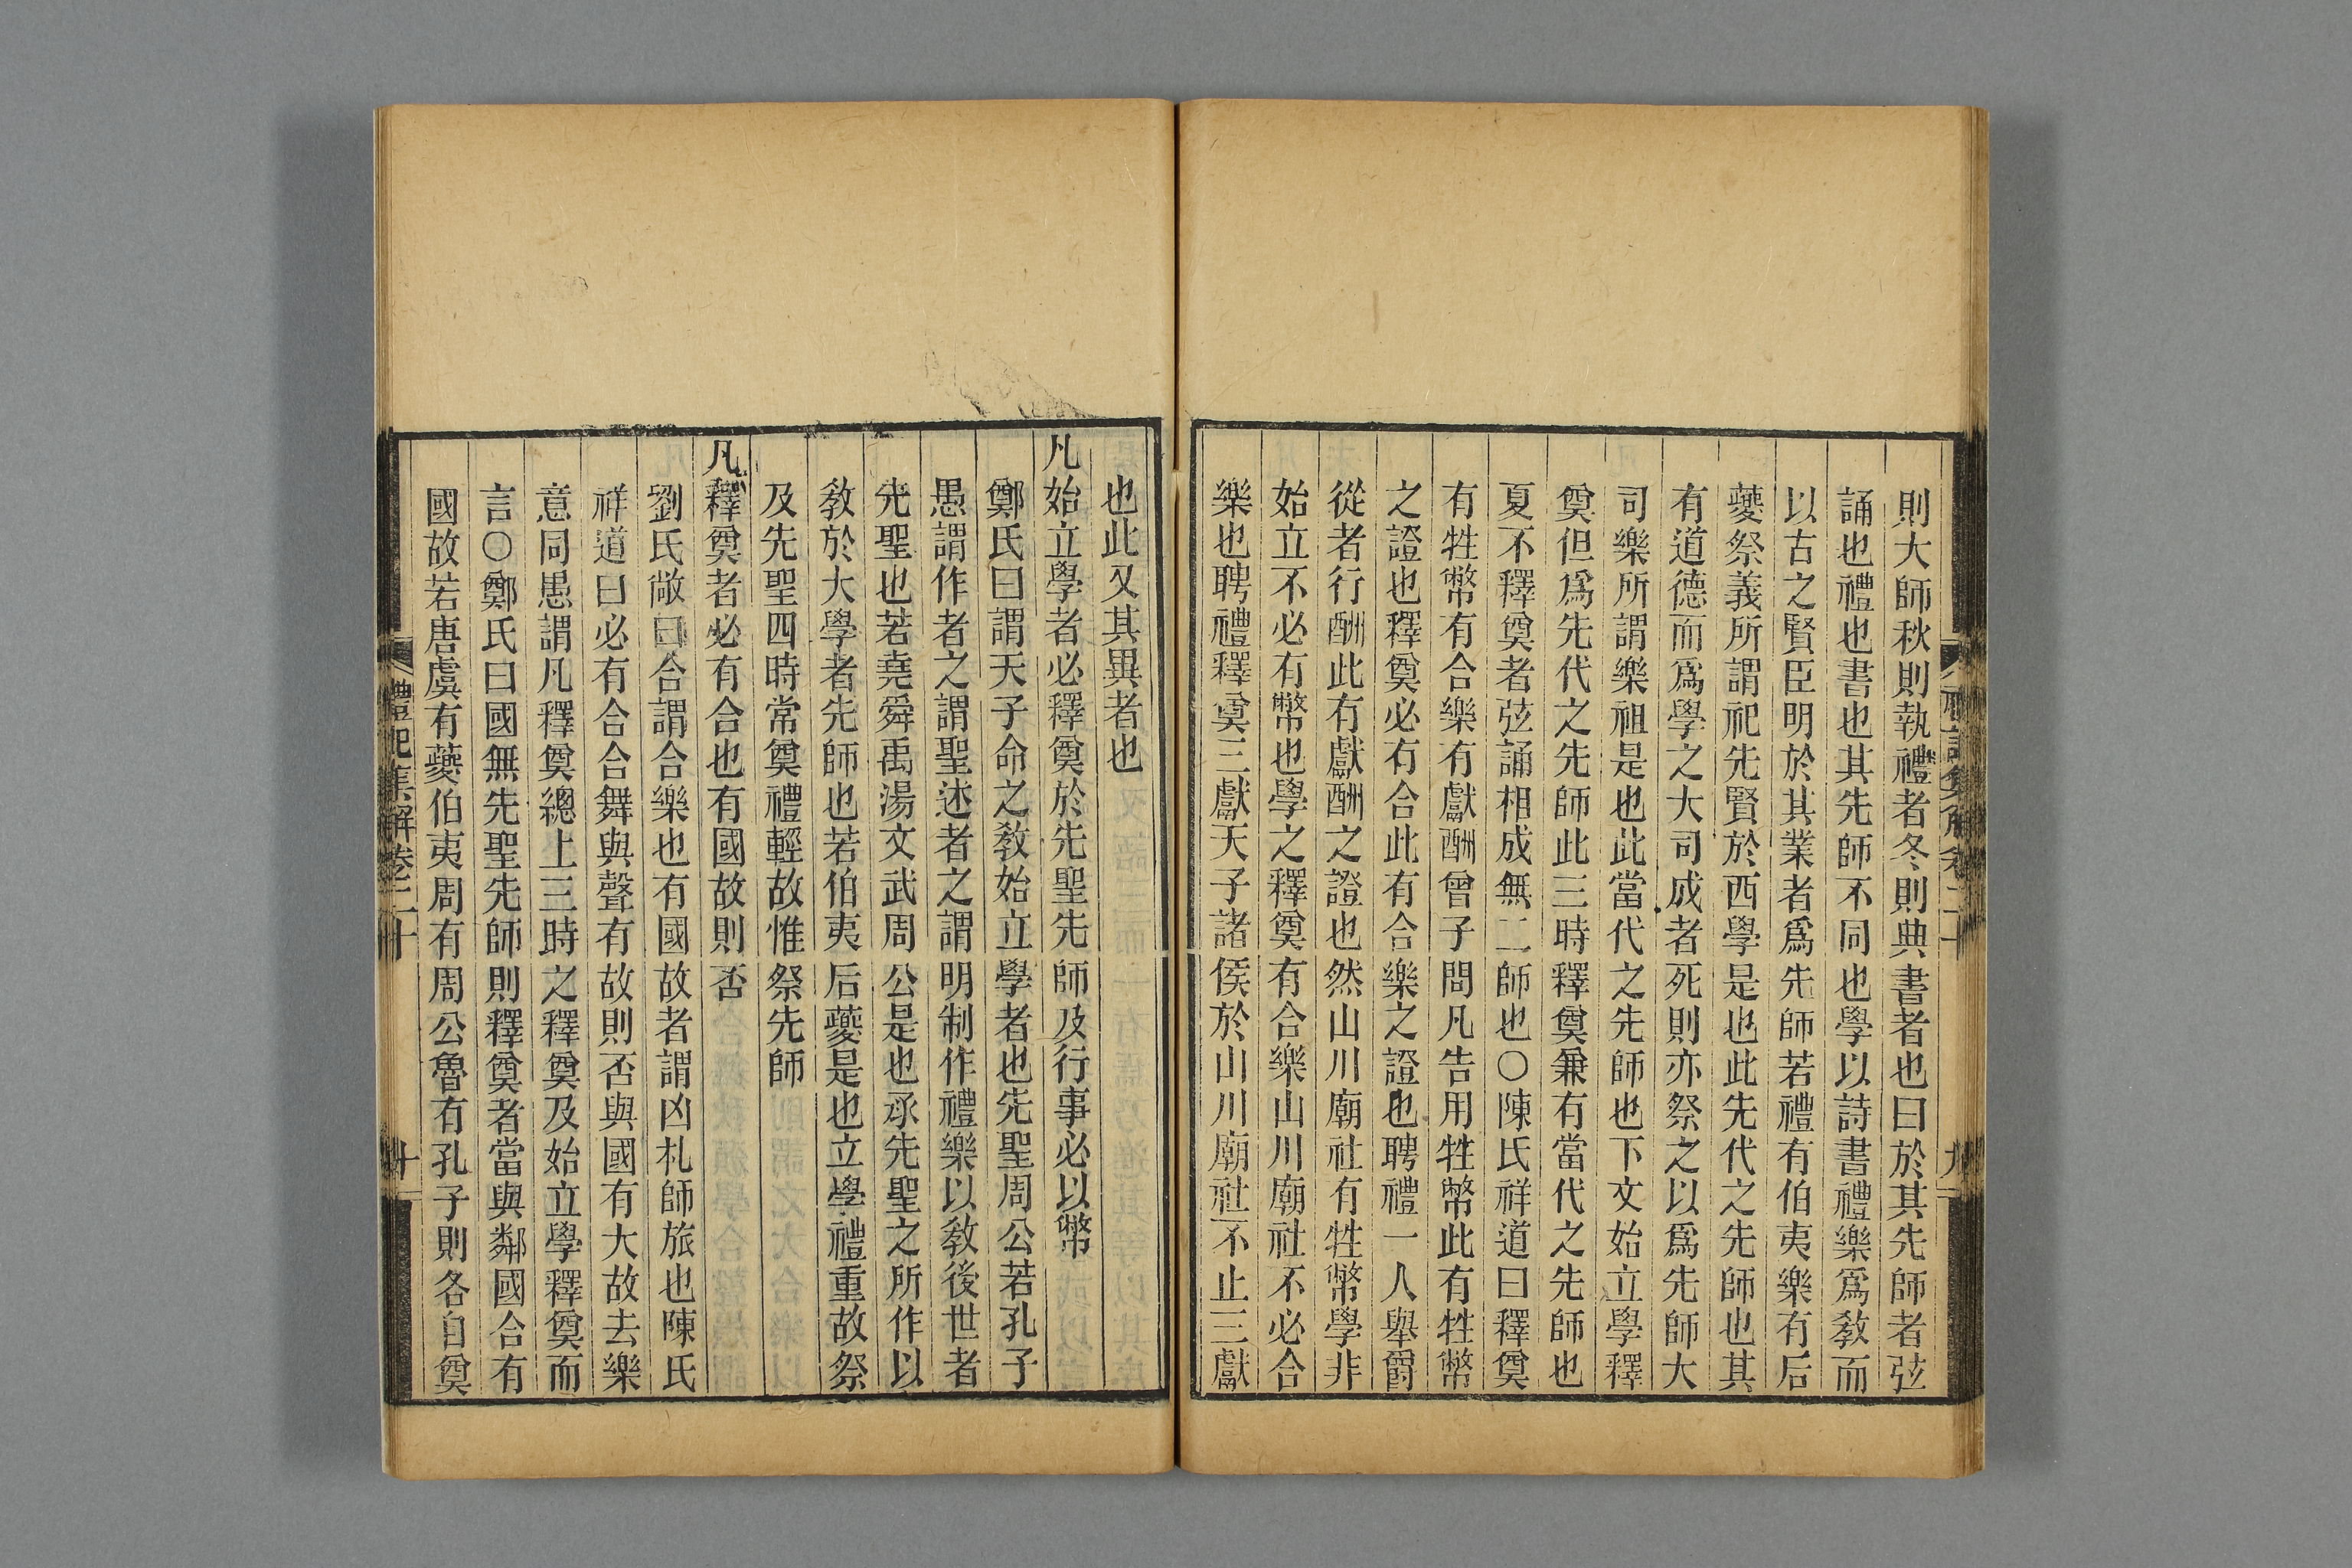 則大師秋則執禮者冬則典書者也曰於其先師者弦
誦也禮也書也其先師不同也學以詩書禮樂爲教而
以古之賢臣明於其業者爲先師若禮有伯夷樂有后
夔祭義所謂祀先賢於西學是也此先代之先師也其
有道德而爲學之大司成者死則亦祭之以爲先師大
司樂所謂樂祖是也此當代之先師也下文始立學釋
奠但爲先代之先師此三時釋奠兼有當代之先師也
夏不釋奠者弦誦相成無二師也○陳氏祥道曰釋奠
有牲幣有合樂有獻酬曾子問凡告用牲幣此有牲幣
之證也釋奠必有合此有合樂之證也聘禮一人舉爵
從者行酬此有獻酬之證也然山川廟社有牲幣學非
始立不必有幣也學之釋奠有合樂山川廟社不必合
樂也聘禮釋奠三獻天子諸侯於山川廟社不止三獻
也此又其異者也
凡始立學者必釋奠於先聖先師及行事必以幣
鄭氏曰謂天子命之教始立學者也先聖周公若孔子
愚謂作者之謂聖述者之謂明制作禮樂以教後世者
先聖也若堯舜禹湯文武周公是也承先聖之所作以
教於大學者先師也若伯夷后夔是也立學禮重故祭
及先聖四時常奠禮輕故惟祭先師
凡釋奠者必有合也有國故則否
劉氏敞曰合謂合樂也有國故者謂凶札師旅也陳氏
祥道曰必有合合舞與聲有故則否與國有大故去樂
意同愚謂凡釋奠總上三時之釋奠及始立學釋奠而
言○鄭氏曰國無先聖先師則釋奠者當與鄰國合有
國故若唐虞有夔伯夷周有周公魯有孔子則各自奠
禮記集解卷二十
十
九